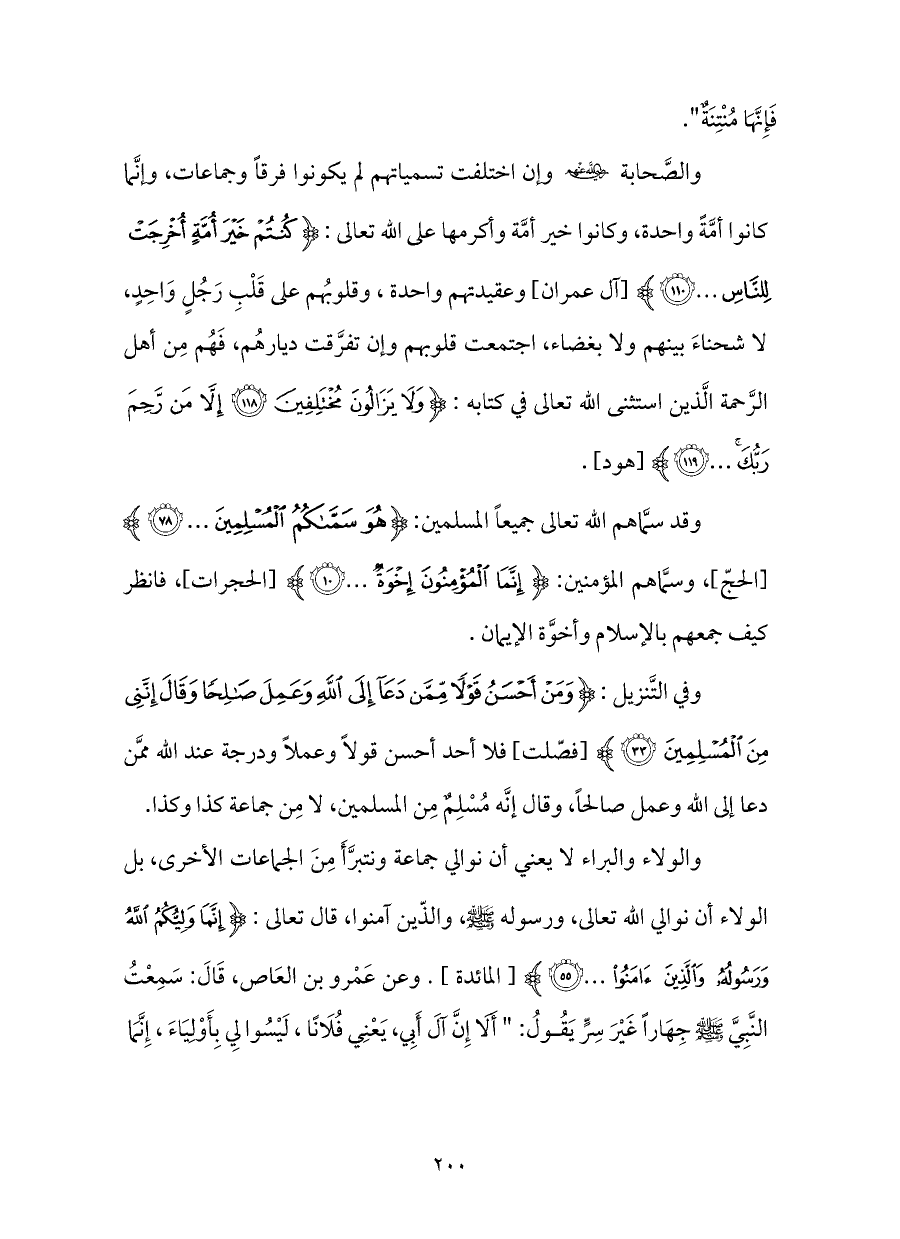 فَإِنَّهَا مُنْتِنَةٌ".
والصَّحابة ﵃ وإن اختلفت تسمياتهم لم يكونوا فرقاً وجماعات، وإنَّما
كانوا أمَّةً واحدة، وكانوا خير أمَّة وأكرمها على الله تعالى : ﴿ كُنتُمْ خَيْرَ أُمَّةٍ أُخْرِجَتْ
لِلنَّاسِ ... ١١٠ ﴾ [آل عمران] وعقيدتهم واحدة ، وقلوبُهم على قَلْبِ رَجُلٍ وَاحِدٍ،
لا شحناءَ بينهم ولا بغضاء، اجتمعت قلوبهم وإن تفرَّقت ديارهُم، فَهُم مِن أهل
الرَّحمة الَّذين استثنى الله تعالى في كتابه : ﴿ وَلَا يَزَالُونَ مُخْتَلِفِينَ ١١٨ إِلَّا مَن رَّحِمَ
رَبُّكَ ۚ ... ١١٩ ﴾ [هود] .
وقد سمَّاهم الله تعالى جميعاً المسلمين: ﴿ هُوَ سَمَّىٰكُمُ ٱلْمُسْلِمِينَ ... ٧٨ ﴾
[الحجّ]، وسمَّاهم المؤمنين: ﴿ إِنَّمَا ٱلْمُؤْمِنُونَ إِخْوَةٌ ... ١٠ ﴾ [الحجرات]، فانظر
كيف جمعهم بالإسلام وأخوَّة الإيمان .
وفي التَّنزيل : ﴿ وَمَنْ أَحْسَنُ قَوْلًا مِّمَّن دَعَآ إِلَى ٱللَّهِ وَعَمِلَ صَـٰلِحًا وَقَالَ إِنَّنِى
مِنَ ٱلْمُسْلِمِينَ ٣٣ ﴾ [فصّلت] فلا أحد أحسن قولاً وعملاً ودرجة عند الله ممَّن
دعا إلى الله وعمل صالحاً، وقال إنَّه مُسْلِمٌ مِن المسلمين، لا مِن جماعة كذا وكذا.
والولاء والبراء لا يعني أن نوالي جماعة ونتبرَّأَ مِنَ الجماعات الأخرى، بل
الولاء أن نوالي الله تعالى، ورسوله ﷺ، والذّين آمنوا، قال تعالى : ﴿ إِنَّمَا وَلِيُّكُمُ ٱللَّهُ
وَرَسُولُهُۥ وَٱلَّذِينَ ءَامَنُوا۟ ... ٥٥ ﴾ [ المائدة ] . وعن عَمْرو بن العَاص، قَالَ: سَمِعْتُ
النَّبِيَّ ﷺ جِهَاراً غَيْرَ سِرٍّ يَقُـولُ: " أَلَا إِنَّ آلَ أَبِي، يَعْنِي فُلَانًا ، لَيْسُوا لِي بِأَوْلِيَاءَ ، إِنَّمَا
٢٠٠